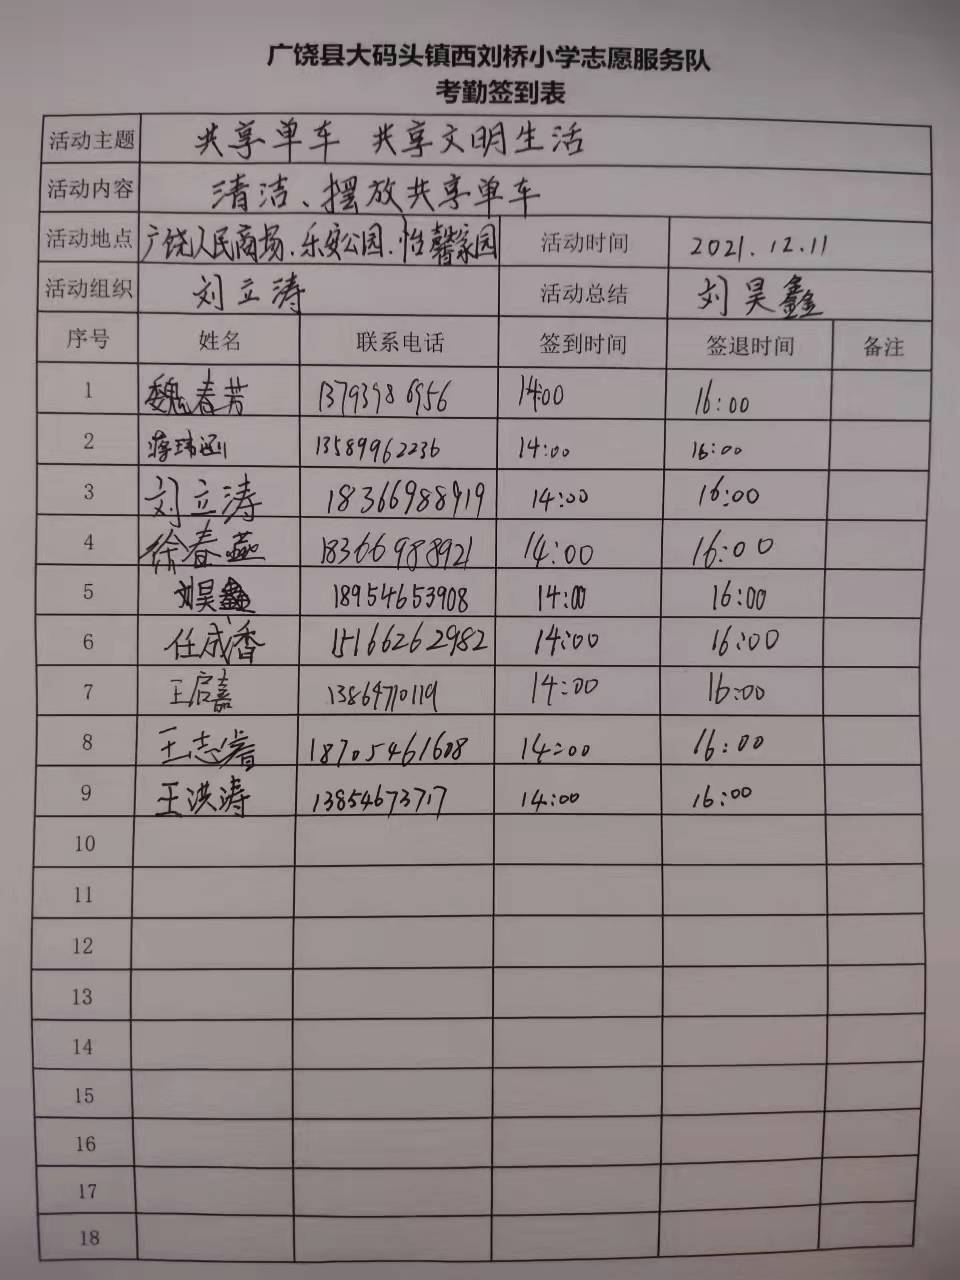 广饶县大码头镇西刘桥小学志愿服务队
考勤签到表
活动主题 共享单车 共享文明生活
活动内容 清洁、摆放共享单车
活动地点 广饶人民商场、乐安公园、怡馨家园 活动时间 2021.12.11
活动组织 刘立涛 活动总结 刘昊鑫
序号 姓名 联系电话 签到时间 签退时间 备注
1 魏春芳 13793986956 14:00 16:00
2 蒋玮涵 13589962236 14:00 16:00
3 刘立涛 18366988919 14:00 16:00
4 徐春燕 18366988921 14:00 16:00
5 刘昊鑫 18954653908 14:00 16:00
6 任成香 15166262982 14:00 16:00
7 王启嘉 13864710119 14:00 16:00
8 王志睿 18705461608 14:00 16:00
9 王洪涛 13854673717 14:00 16:00
10
11
12
13
14
15
16
17
18